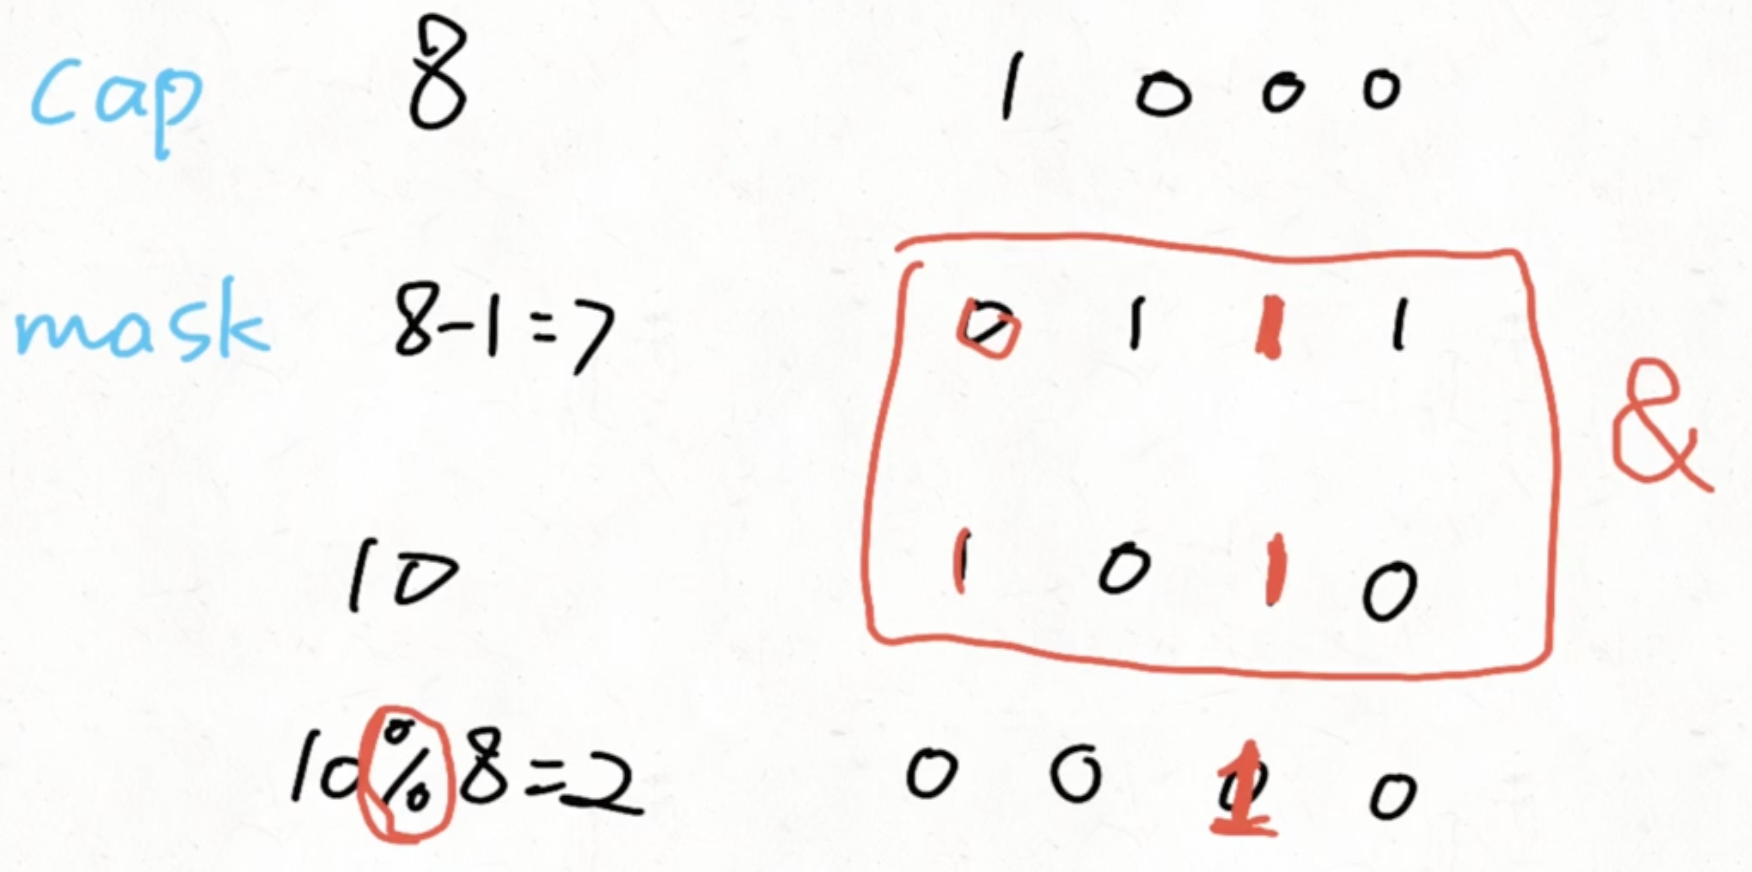 cap 8 1 0 0 0
mask 8-1=7 0 1 1 1
&
10 1 0 1 0
10%8=2 0 0 1 0